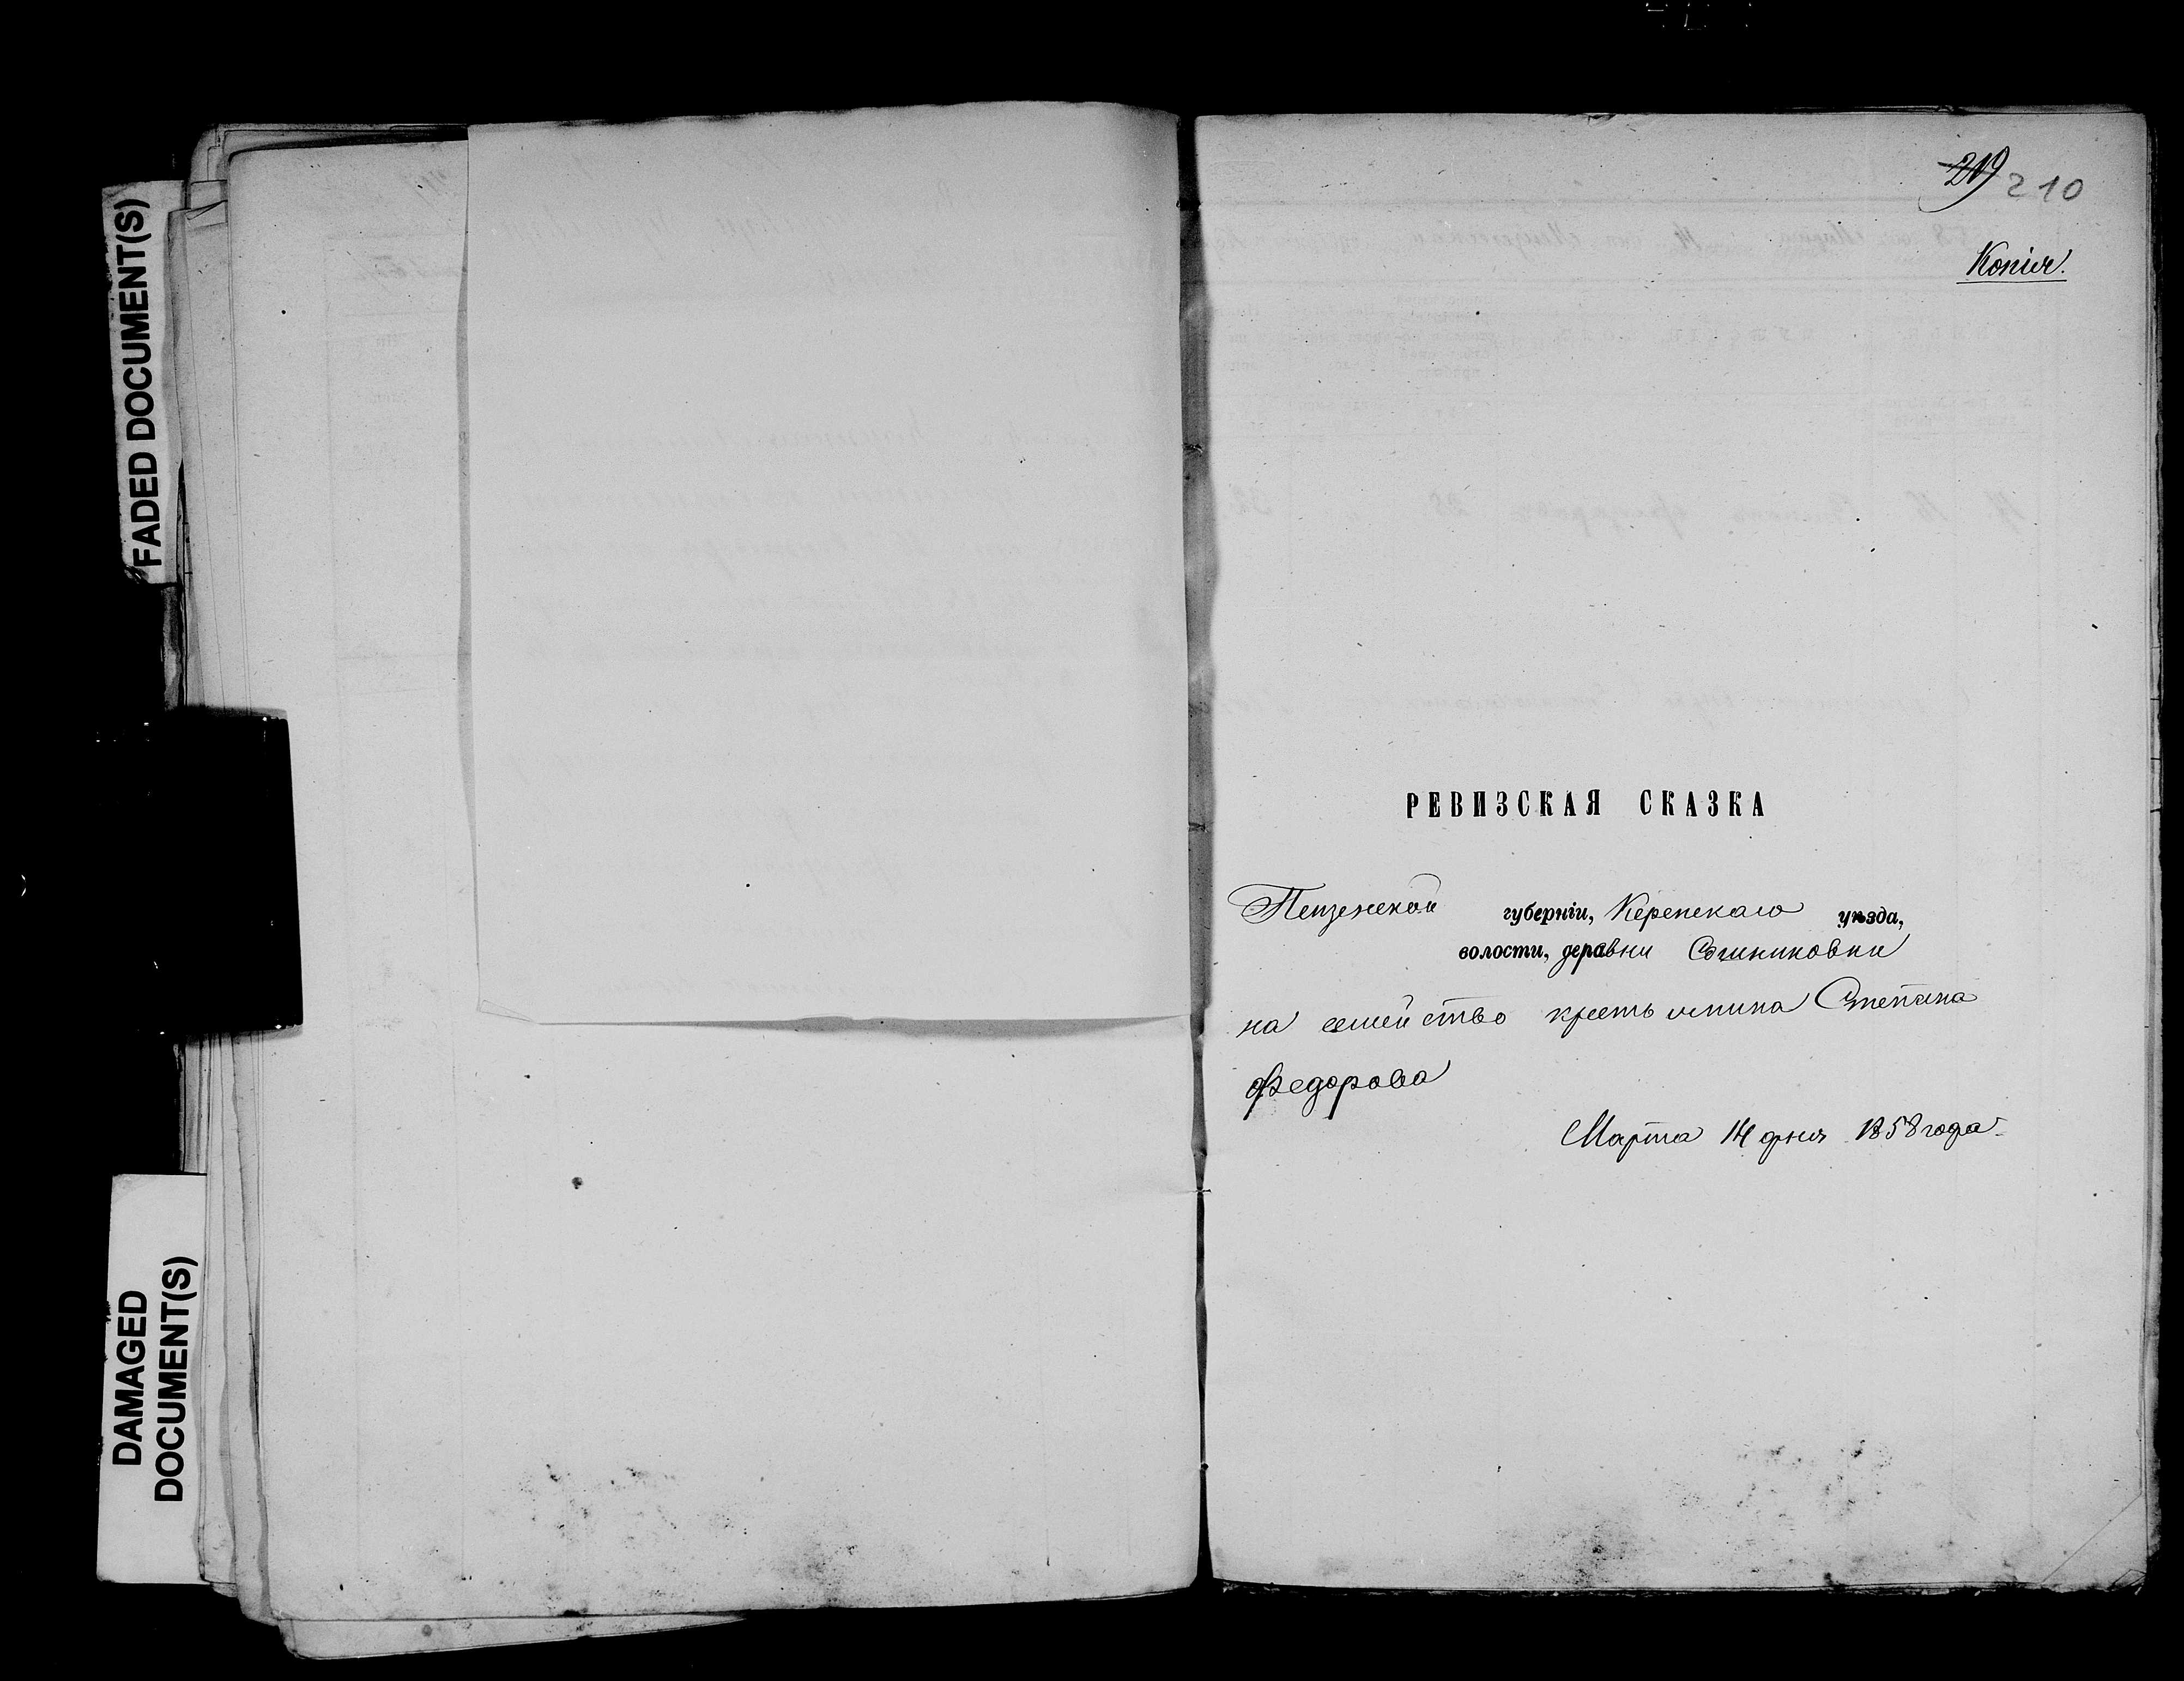 FADED DOCUMENT(S)
DAMAGED
DOCUMENT(S)
219 210
Копія.
РЕВИЗСКАЯ СКАЗКА
Пензенской губерніи, Керенскаго уѣзда,
волости, деравни
на семейство крестьянина Степана
Федорова
Марта 14 дня 1858 года